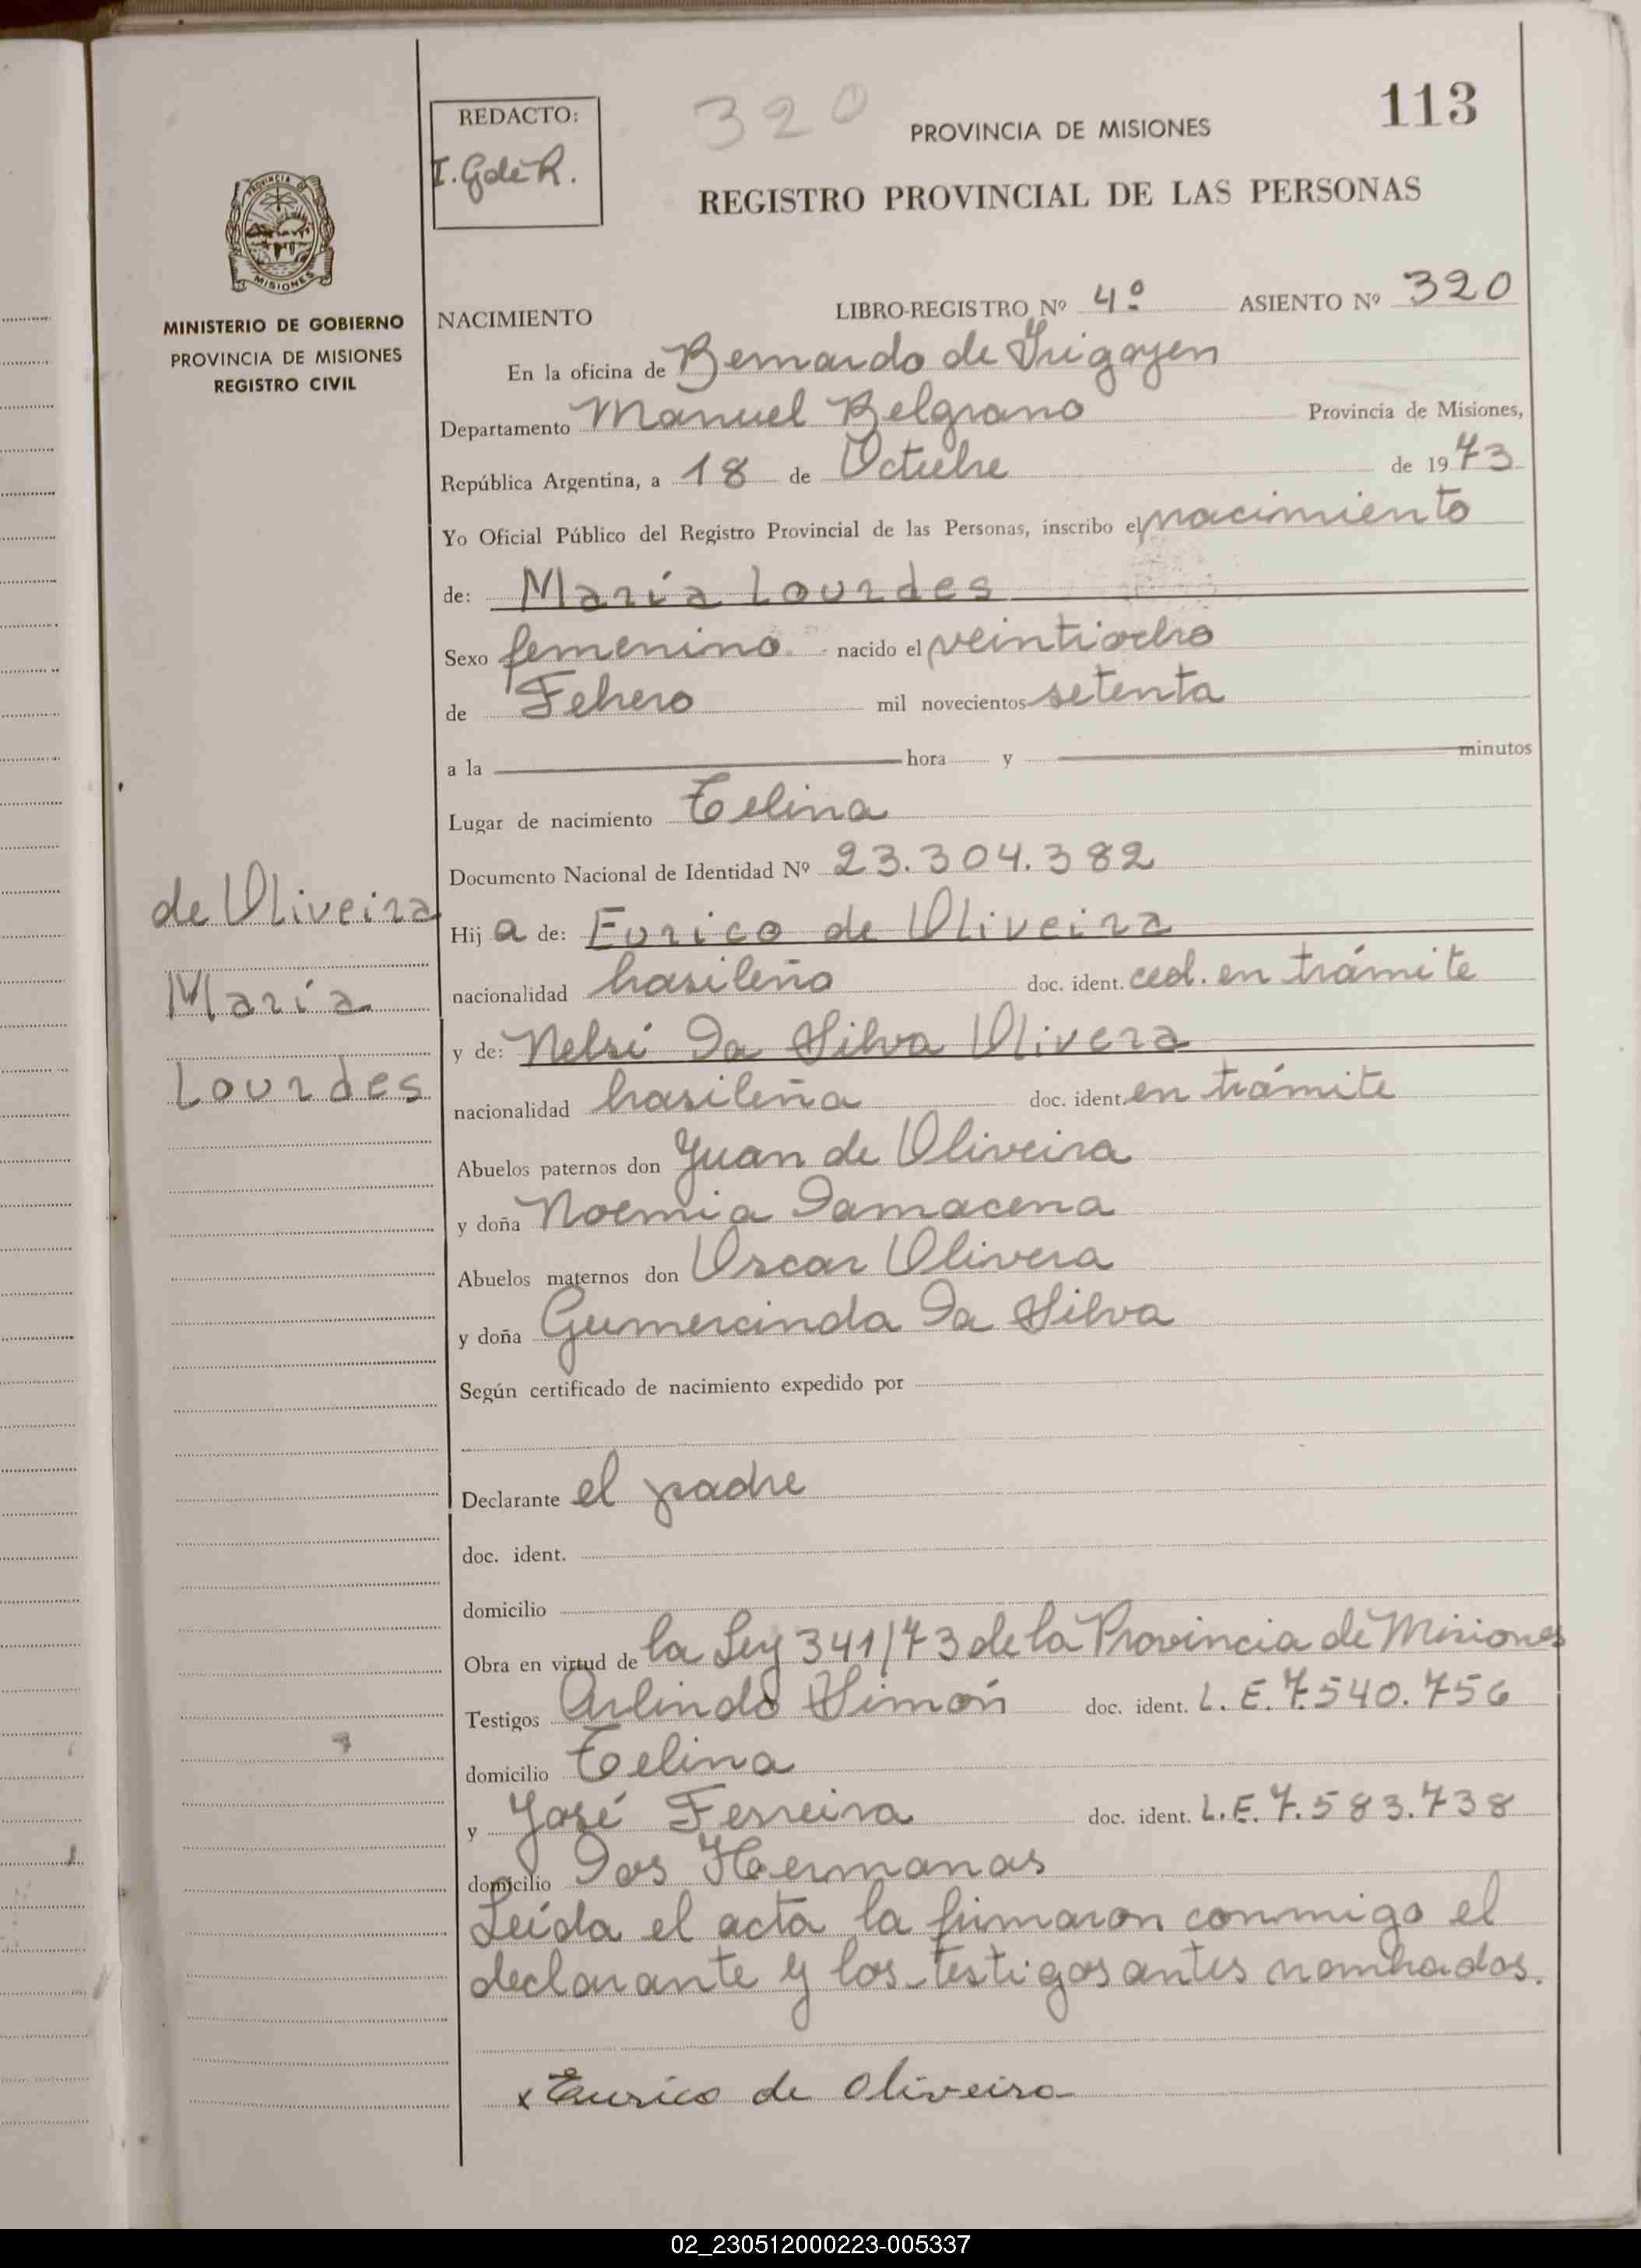 113
320
REDACTO:
I. G de R.
PROVINCIA DE MISIONES
REGISTRO PROVINCIAL DE LAS PERSONAS
PROVINCIA DE
MISIONES
MINISTERIO DE GOBIERNO
PROVINCIA DE MISIONES
REGISTRO CIVIL
NACIMIENTO LIBRO-REGISTRO Nº 4º ASIENTO Nº 320
En la oficina de Bernardo de Irigoyen
Departamento Manuel Belgrano Provincia de Misiones,
República Argentina, a 18 de Octubre de 1973
Yo Oficial Público del Registro Provincial de las Personas, inscribo el nacimiento
de: María Lourdes
Sexo femenino nacido el veintiocho
de Febrero mil novecientos setenta
a la hora y minutos
Lugar de nacimiento Celina
Documento Nacional de Identidad Nº 23.304.382
de Oliveira
María
Lourdes
Hij a de: Eurico de Oliveira
nacionalidad brasileño doc. ident. ced. en trámite
y de: Nelsi Da Silva Olivera
nacionalidad brasileña doc. ident. en trámite
Abuelos paternos don Juan de Oliveira
y doña Noemia Damacena
Abuelos maternos don Oscar Olivera
y doña Gumercinda Da Silva
Según certificado de nacimiento expedido por
Declarante el padre
doc. ident.
domicilio
Obra en virtud de la Ley 341/73 de la Provincia de Misiones
Testigos Arlindo Simón doc. ident. L.E. 7.540.756
domicilio Celina
y José Ferreira doc. ident. L.E. 7.583.738
domicilio Dos Hermanas
Leída el acta la firmaron conmigo el
declarante y los testigos antes nombrados.
x Eurico de Oliveira
02_230512000223-005337